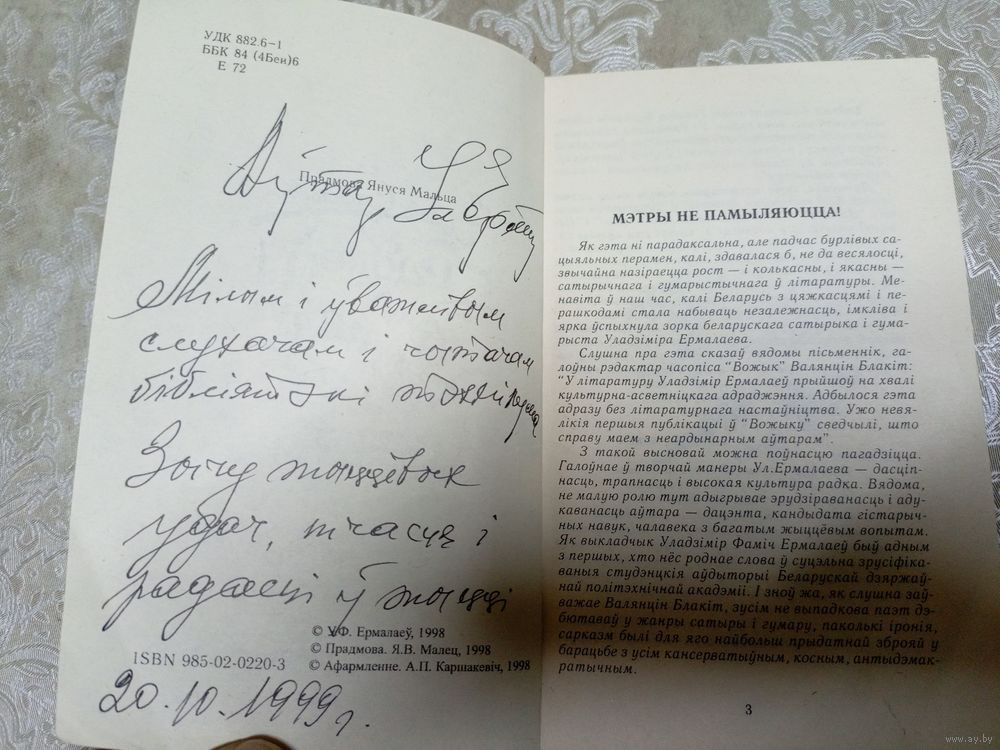 УДК 882.6-1
ББК 84 (4Беи)6
Е 72
Прадмова Януся Мальца
Мілым і ўважлівым
слухачам і чытачам
бібліятэкі
Зычу жыццёвых
удач, шчасця і
радасці ў жыцці
© У.Ф. Ермалаеў, 1998
© Прадмова. Я.В. Малец, 1998
ISBN 985-02-0220-3
© Афармленне. А.П. Каршакевіч, 1998
20.10.1999 г.
МЭТРЫ НЕ ПАМЫЛЯЮЦЦА!
Як гэта ні парадаксальна, але падчас бурлівых са-
цыяльных перамен, калі, здавалася б, не да весялосці,
звычайна назіраецца рост — і колькасны, і якасны —
сатырычнага і гумарыстычнага ў літаратуры. Ме-
навіта ў наш час, калі Беларусь з цяжкасцямі і пе-
рашкодамі стала набываць незалежнасць, імкліва і
ярка ўспыхнула зорка беларускага сатырыка і гума-
рыста Уладзіміра Ермалаева.
Слушна пра гэта сказаў вядомы пісьменнік, га-
лоўны рэдактар часопіса "Вожык" Валянцін Блакіт:
"У літаратуру Уладзімір Ермалаеў прыйшоў на хвалі
культурна-асветніцкага адраджэння. Адбылося гэта
адразу без літаратурнага настаўніцтва. Ужо невя-
лікія першыя публікацыі ў "Вожыку" сведчылі, што
справу маем з неардынарным аўтарам".
З такой высновай можна поўнасцю пагадзіцца.
Галоўнае ў творчай манеры Ул.Ермалаева — дасціп-
насць, трапнасць і высокая культура радка. Вядома,
не малую ролю тут адыгрывае эрудзіраванасць і аду-
каванасць аўтара — дацэнта, кандыдата гістарыч-
ных навук, чалавека з багатым жыццёвым вопытам.
Як выкладчык Уладзімір Фаміч Ермалаеў быў адным
з першых, хто нёс роднае слова ў суцэльна зрусіфіка-
ваныя студэнцкія аўдыторыі Беларускай дзяржаў-
най політэхнічнай акадэміі. І зноў жа, як слушна заў-
важае Валянцін Блакіт, зусім не выпадкова паэт дэ-
бютаваў у жанры сатыры і гумару, паколькі іронія,
сарказм былі для яго найбольш прыдатнай зброяй у
барацьбе з усім кансерватыўным, косным, антыдэмак-
ратычным.
3
www.ay.by